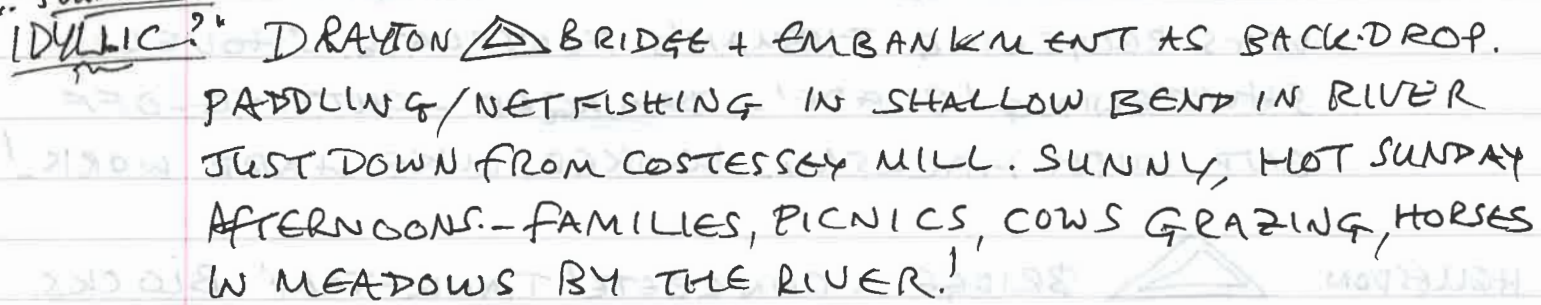 IDYLLIC?" DRAYTON BRIDGE + EMBANKMENT AS BACK-DROP.
PADDLING/NET FISHING IN SHALLOW BEND IN RIVER
JUST DOWN FROM COSTESSEY MILL. SUNNY, HOT SUNDAY
AFTERNOONS. - FAMILIES, PICNICS, COWS GRAZING, HORSES
IN MEADOWS BY THE RIVER!